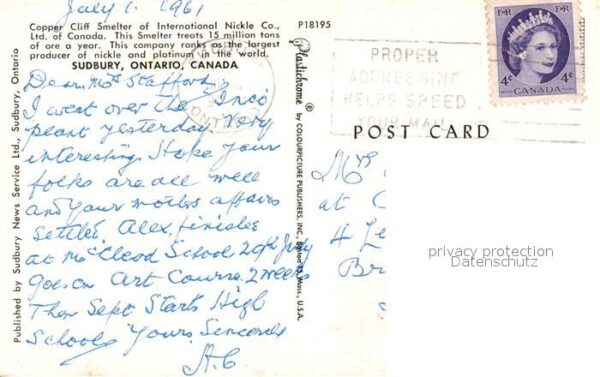 July 1. 1961
Copper Cliff Smelter of International Nickle Co.,
Ltd. of Canada. This Smelter treats 15 million tons
of ore a year. This company ranks as the largest
producer of nickle and platinum in the world.
SUDBURY, ONTARIO, CANADA
P18195
Dear Mrs Stafford,
I went over the Inco
plant yesterday Very
interesting. Hope your
folks are all well
and your mothers affairs
settled. Alex. finishes
at McCleod School 29th July
goes on Art Course. 2 weeks
Then Sept Starts High
School. Yours Sincerely
A.C
Published by Sudbury News Service Ltd., Sudbury, Ontario
Plastichrome ® by COLOURPICTURE PUBLISHERS, INC., Boston 15, Mass., U.S.A.
PROPER
ADDRESSING
HELPS SPEED
YOUR MAIL
EIIR EIIR
4¢ 4¢
CANADA
POST CARD
Mrs
at C
4 Le
Br
privacy protection
Datenschutz